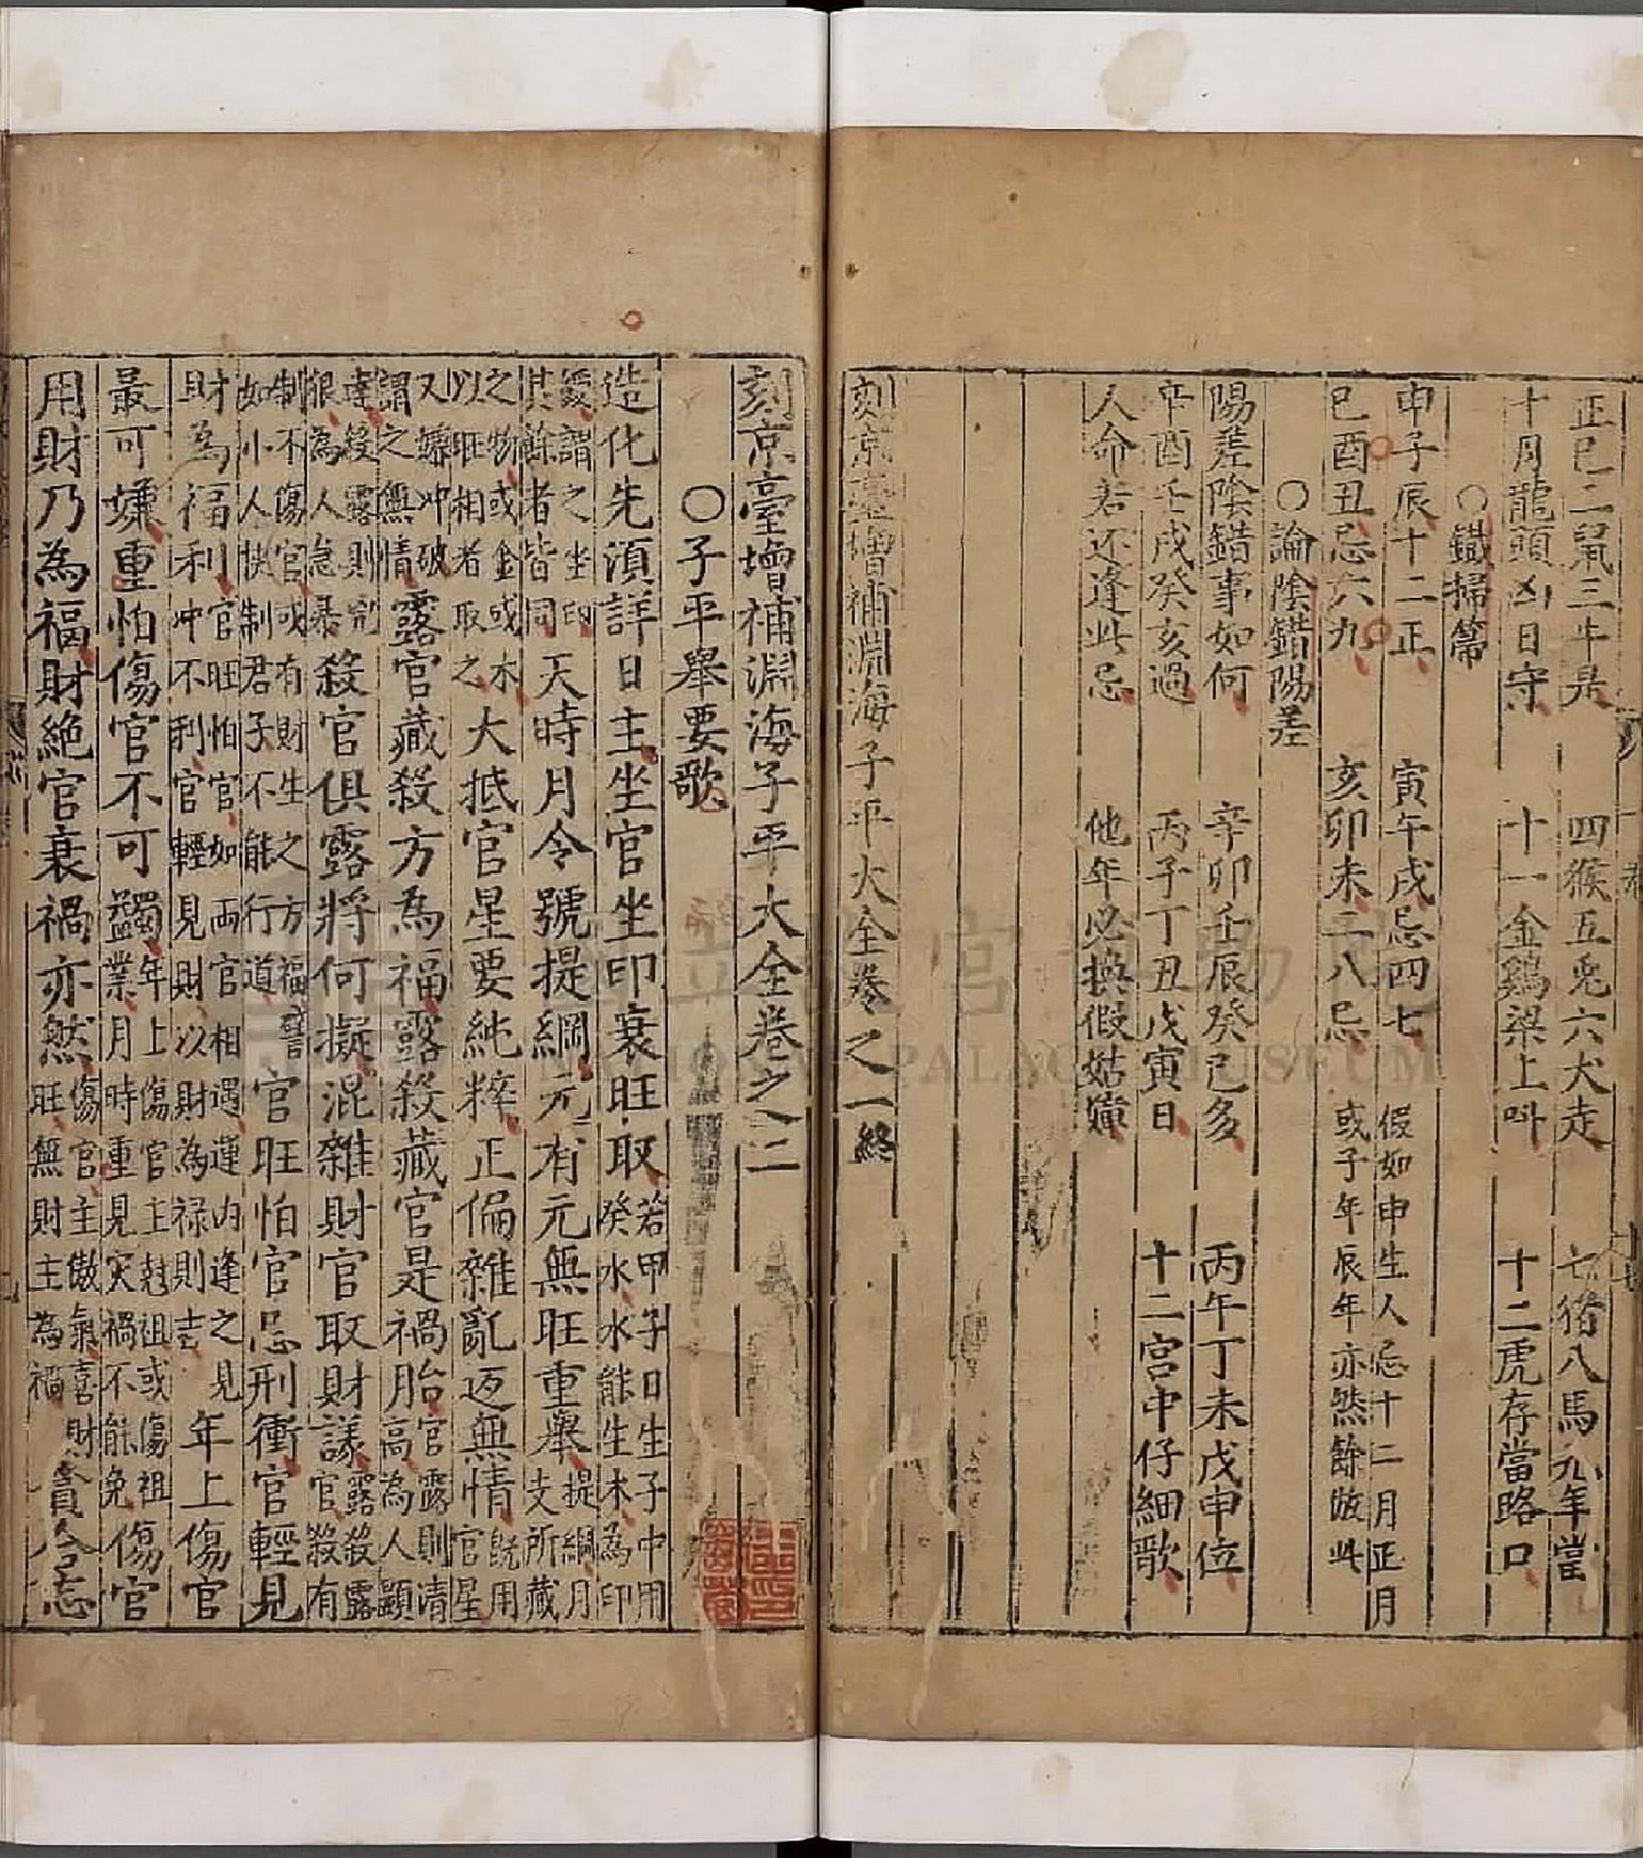 正巳二鼠三牛是 四猴五兎六犬走 七猪八馬九年當
十月龍頭凶日守 十一金鷄梁上呌 十二虎存當路口
○鐵掃箒
申子辰十二正 寅午戌忌四七 假如申生人忌十二月正月
巳酉丑忌六九 亥卯未二八忌 或子年辰年亦然餘倣此
○論陰錯陽差
陽差陰錯事如何 辛卯壬辰癸巳多 丙午丁未戊申位
辛酉壬戌癸亥過 丙子丁丑戊寅日 十二宮中仔細歌
人命若还逢此忌 他年必換假姑嫜
刻京臺增補淵海子平大全卷之一終
刻京臺增補淵海子平大全卷之二
○子平舉要歌
造化先湏詳日主坐官坐印衰旺取若甲子日生子中用癸水水能生木為印
綬謂之坐印其餘者皆同天時月令號提綱元有元無旺重舉提綱月支所藏
之物或金或木以旺相者取之大抵官星要純粹正偏雜亂返無情旣用官星
又嫌冲破謂之無情露官藏殺方為福露殺藏官是禍胎官露則清高為人顯
達殺露則兇狠為人急暴殺官俱露將何擬混雜財官取財議露殺露官殺有
制不傷官或有財生之方福譬如小人快制君子不能行道官旺怕官忌刑衝官輕見
財為福利官旺怕官如両官相遇運内逢之見財冲不利官輕見財以財為禄則吉年上傷官
最可嫌重怕傷官不可蠲年上傷官主尅祖或傷祖業月時重見灾禍不能免傷官
用財乃為福財絶官衰禍亦然傷官主傲氣喜財旺無財主為禍貪合忘
NATIONAL PALACE MUSEUM